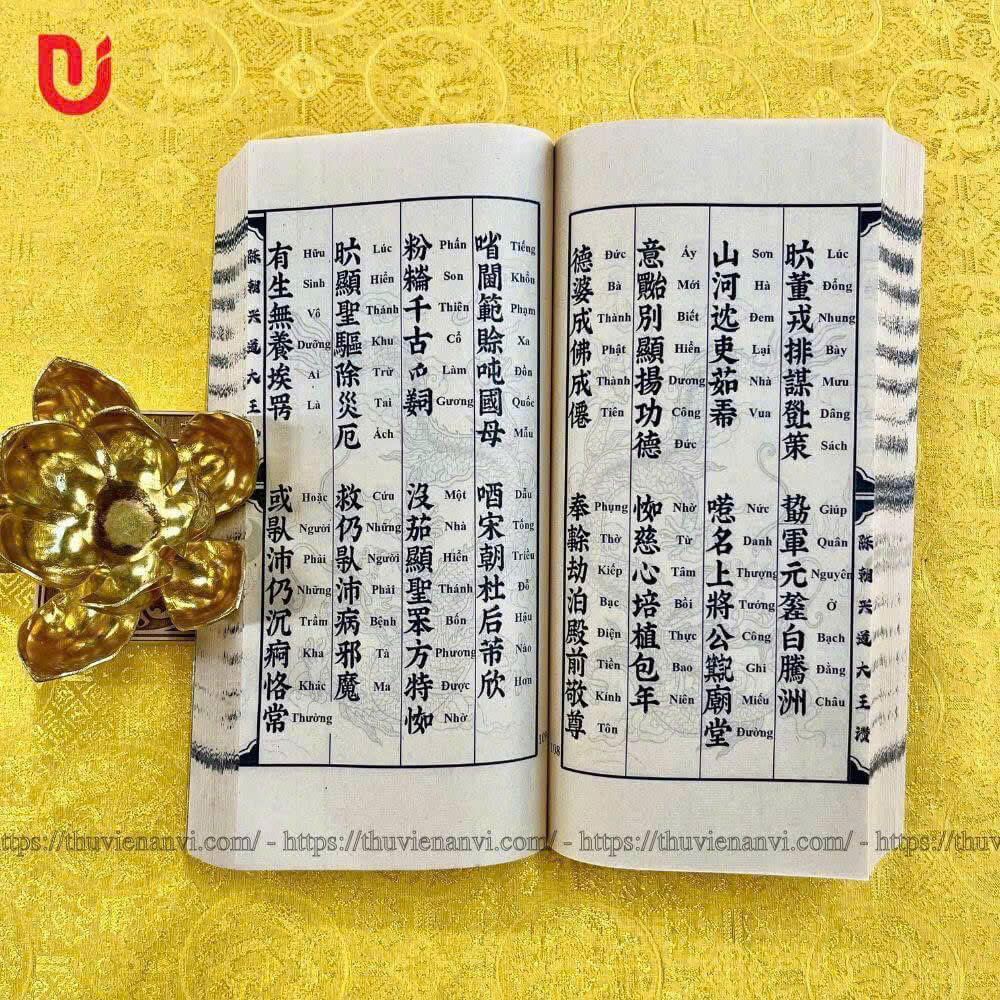 𣅶董戎排謀策
Lúc Đổng Nhung Bày Mưu Dâng Sách
軍元白騰洲
Giúp Quân Nguyên Ở Bạch Đằng Châu
山河吏茹
Sơn Hà Đem Lại Nhà Vua
名上將公廟堂
Nức Danh Thượng Tướng Công Ghi Miếu Đường
意別顯揚功德
Ấy Mới Biết Hiển Dương Công Đức
慈心培植包年
Nhờ Từ Tâm Bồi Thực Bao Niên
德婆成佛成僊
Đức Bà Thành Phật Thành Tiên
奉劫泊殿前敬尊
Phụng Thờ Kiếp Bạc Điện Tiền Kính Tôn
陈朝兴道大王
108
㗂閫範賒吨國母
Tiếng Khổn Phạm Xa Đồn Quốc Mẫu
宋朝杜后芾欣
Dẫu Tống Triều Đỗ Hậu Nào Hơn
粉千古
Phấn Son Thiên Cổ Làm Gương
沒茹顯聖方特
Một Nhà Hiển Thánh Bốn Phương Được Nhờ
𣅶顯聖驅除災厄
Lúc Hiển Thánh Khu Trừ Tai Ách
救仍沛病邪魔
Cứu Những Người Phải Bệnh Tà Ma
有生無養埃
Hữu Sinh Vô Dưỡng Ai Là
或沛仍沉痾恪常
Hoặc Người Phải Những Trầm Kha Khác Thường
陈朝兴道大王
109
https://thuvienanvi.com/ - https://thuvienanvi.com/ - https://thuvienanvi.com/